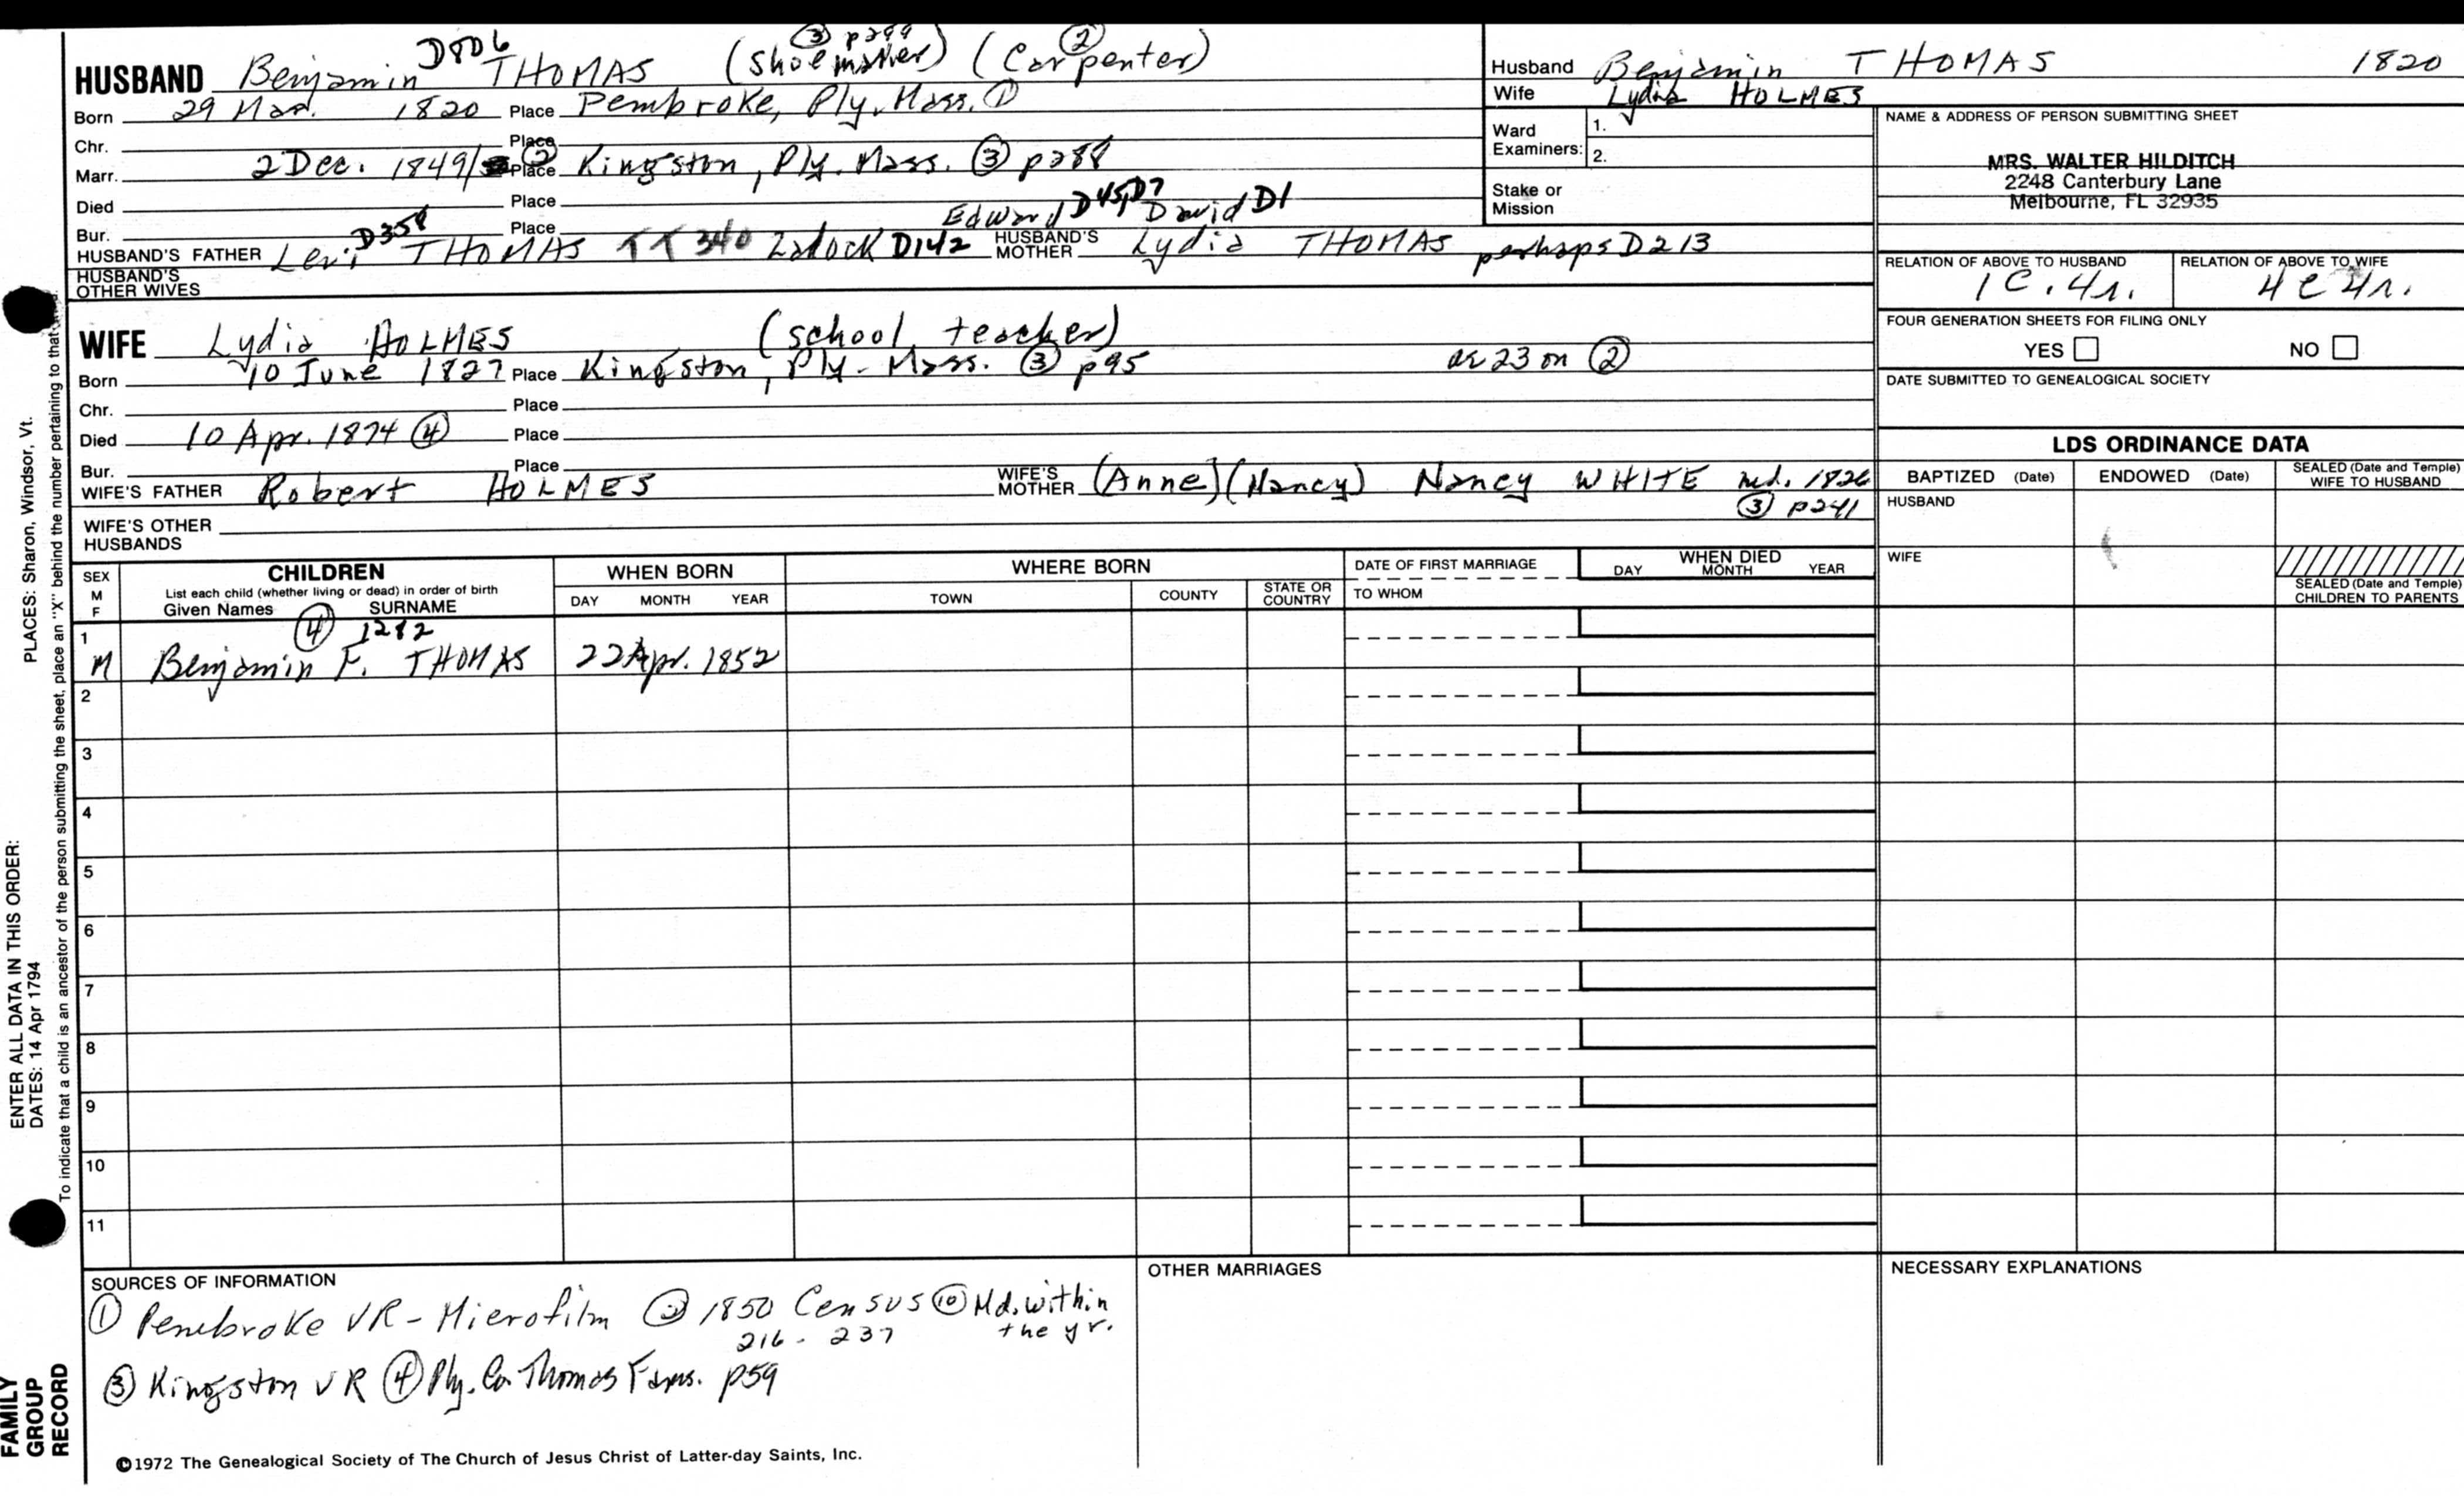 D806 ③ p299 ②
HUSBAND Benjamin THOMAS (Shoemaker) (Carpenter)
Born 29 Mar. 1820 Place Pembroke, Ply. Mass. ①
Chr. Place
Marr. 2 Dec. 1849/ ② Place Kingston, Ply. Mass. ③ p288
Died Place
Bur. Place
D358 Edward D45, D7 David D1
HUSBAND'S FATHER Levi THOMAS TT 340 Zadock D142 HUSBAND'S MOTHER Lydia THOMAS perhaps D213
HUSBAND'S OTHER WIVES
WIFE Lydia HOLMES (school teacher)
Born 10 June 1827 Place Kingston, Ply. Mass. ③ p95 ae 23 on ②
Chr. Place
Died 10 Apr. 1874 ④ Place
Bur. Place
WIFE'S FATHER Robert HOLMES WIFE'S MOTHER (Anne) (Nancy) Nancy WHITE md. 1826
③ p241
WIFE'S OTHER HUSBANDS
Husband Benjamin THOMAS 1820
Wife Lydia HOLMES
Ward Examiners: 1.
2.
Stake or Mission
NAME & ADDRESS OF PERSON SUBMITTING SHEET
MRS. WALTER HILDITCH
2248 Canterbury Lane
Melbourne, FL 32935
RELATION OF ABOVE TO HUSBAND RELATION OF ABOVE TO WIFE
1C.4r. 4C4r.
FOUR GENERATION SHEETS FOR FILING ONLY
YES NO
DATE SUBMITTED TO GENEALOGICAL SOCIETY
LDS ORDINANCE DATA
BAPTIZED (Date) ENDOWED (Date) SEALED (Date and Temple) WIFE TO HUSBAND
HUSBAND
WIFE
SEALED (Date and Temple) CHILDREN TO PARENTS
SEX M F CHILDREN WHEN BORN WHERE BORN DATE OF FIRST MARRIAGE WHEN DIED
List each child (whether living or dead) in order of birth
Given Names SURNAME DAY MONTH YEAR TOWN COUNTY STATE OR COUNTRY TO WHOM DAY MONTH YEAR
1 ④ 1282
M Benjamin F. THOMAS 22 Apr. 1852
2
3
4
5
6
7
8
9
10
11
SOURCES OF INFORMATION
① Pembroke VR - Microfilm ② 1850 Census ⑩ Md. within the yr.
216 - 237
③ Kingston VR ④ Ply. Co. Thomas Fams. p59
OTHER MARRIAGES
NECESSARY EXPLANATIONS
©1972 The Genealogical Society of The Church of Jesus Christ of Latter-day Saints, Inc.
ENTER ALL DATA IN THIS ORDER:
DATES: 14 Apr 1794 PLACES: Sharon, Windsor, Vt.
To indicate that a child is an ancestor of the person submitting the sheet, place an "X" behind the number pertaining to that
FAMILY GROUP RECORD